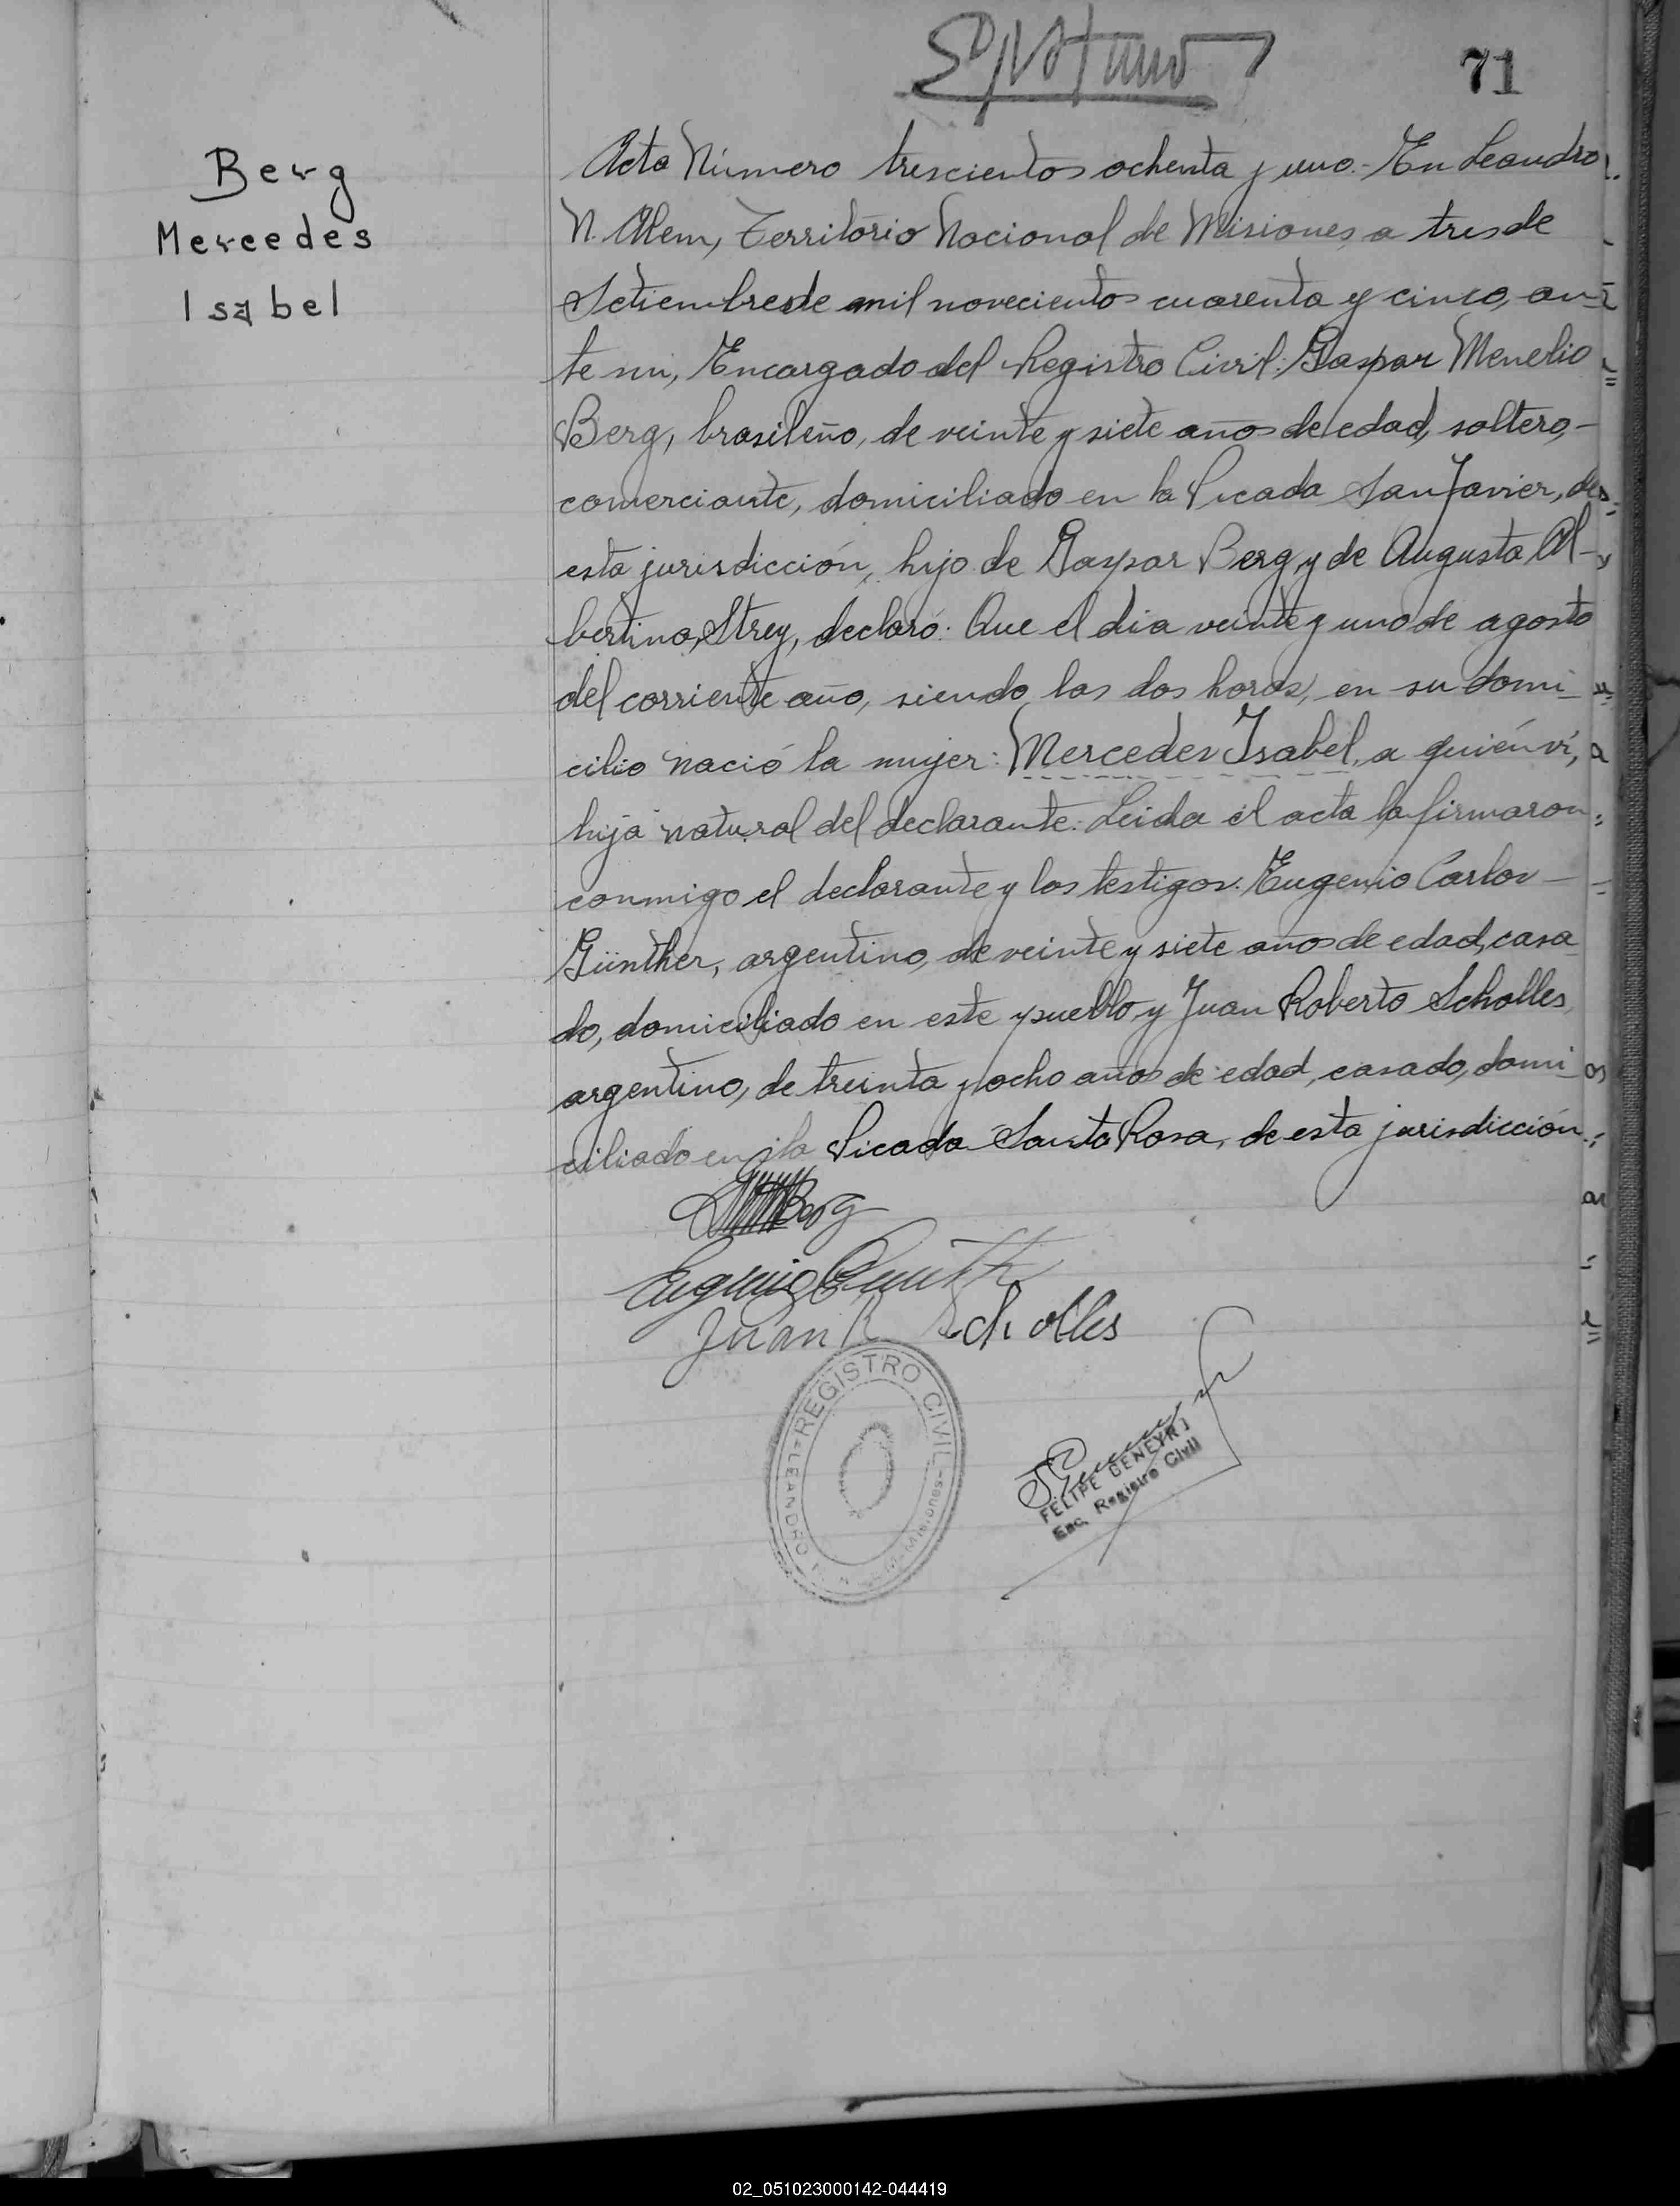 71
Berg
Mercedes
Isabel
Acta Número trescientos ochenta y uno.- En Leandro
N. Alem, Territorio Nacional de Misiones, a tres de
Setiembre de mil novecientos cuarenta y cinco, an-
te mi, Encargado del Registro Civil: Gaspar Menelio
Berg, brasileño, de veinte y siete años de edad, soltero,-
comerciante, domiciliado en la Picada San Javier, de
esta jurisdicción, hijo de Gaspar Berg y de Augusta Al-
bertina Strey, declaró: Que el dia veinte y uno de agosto
del corriente año, siendo las dos horas, en su domi-
cilio nació la mujer: Mercedes Isabel, a quién ví,
hija natural del declarante. Leida el acta la firmaron
conmigo el declarante y los testigos: Eugenio Carlos-
Günther, argentino, de veinte y siete años de edad, casa-
do, domiciliado en este pueblo y Juan Roberto Scholles,
argentino, de treinta y ocho años de edad, casado, domi-
ciliado en la Picada Santa Rosa, de esta jurisdicción.
Berg
Eugenio
Juan R Scholles
REGISTRO CIVIL
LEANDRO N. ALEM - Misiones
FELIPE GENEYRJ
Enc. Registro Civil
02_051023000142-044419